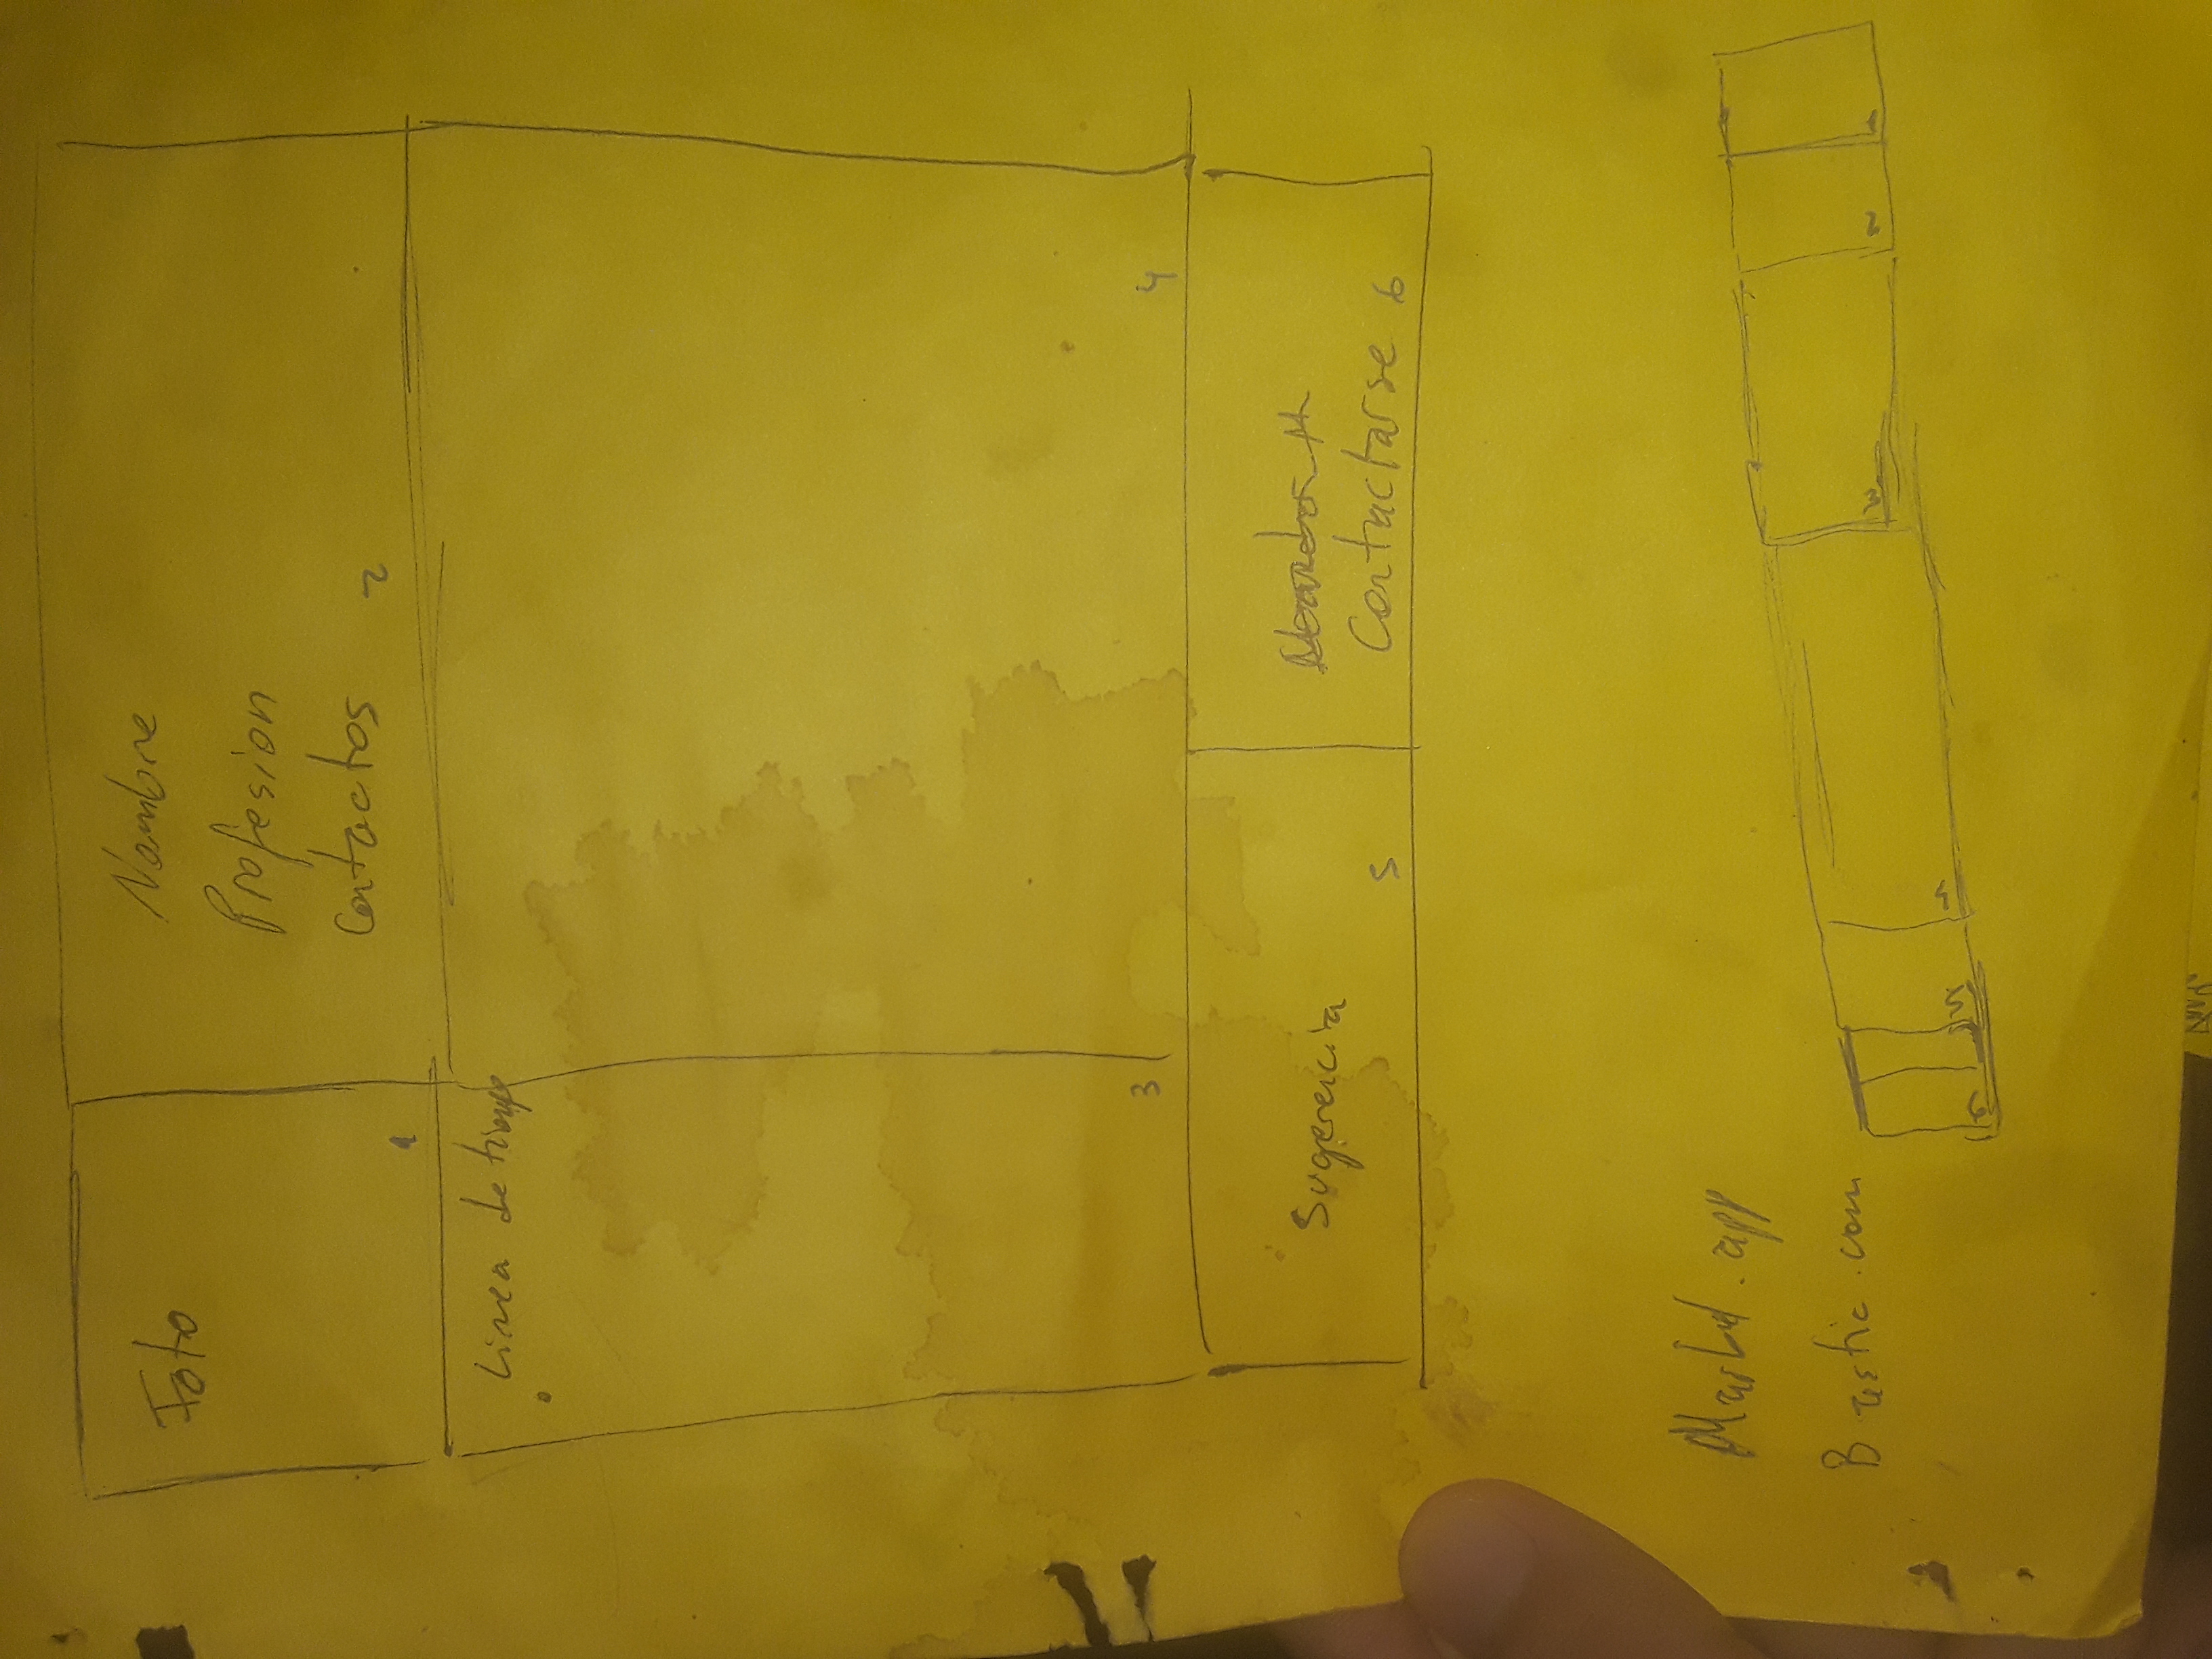 Foto
1
Nombre
Profesion
Contactos 2
Linea de tiempo
3
4
Sugerencia
5
Contactarse 6
.app
.com
6
5
4
3
2
1